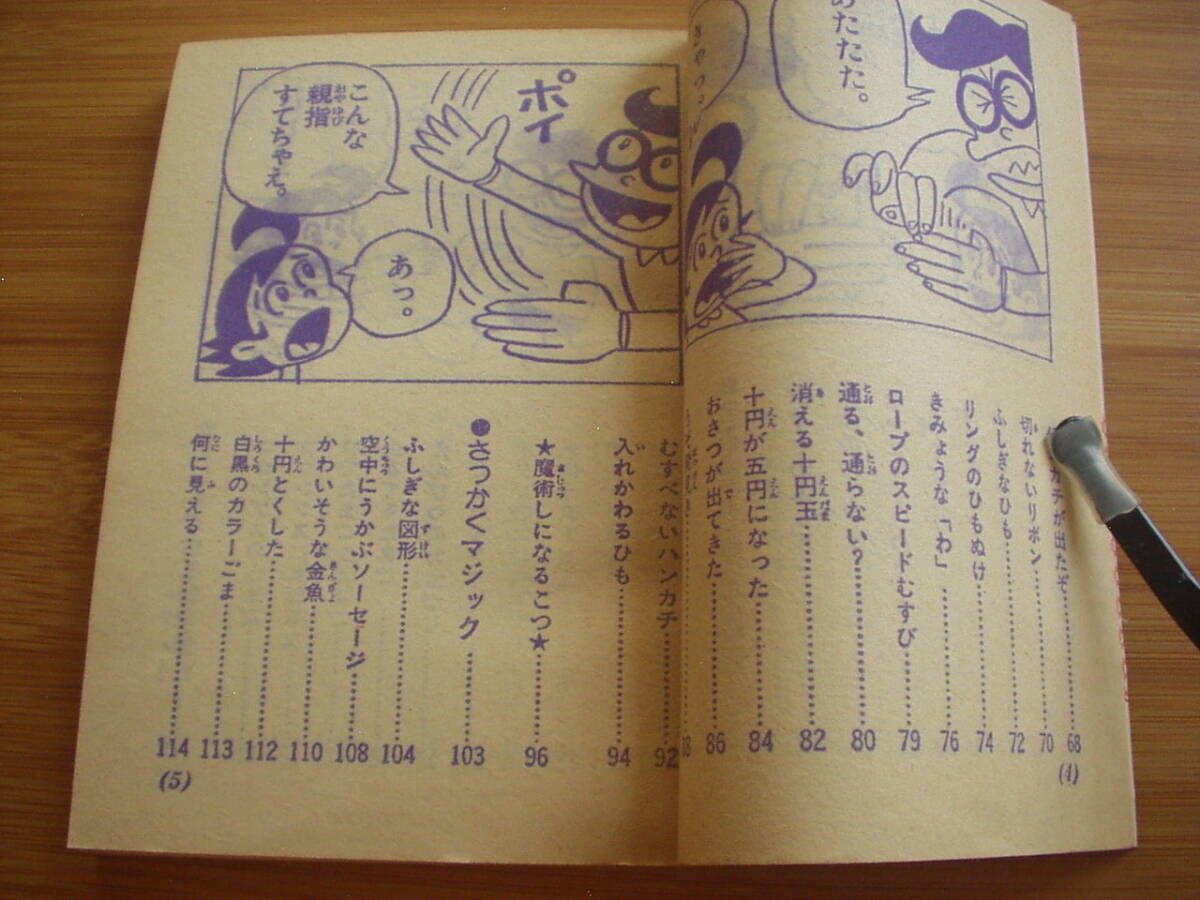 あたたた。
きゃっ。
ハンカチが出たぞ……68
切れないリボン……70
ふしぎなひも……72
リングのひもぬけ……74
きみょうな「わ」……76
ロープのスピードむすび……79
通る、通らない？……80
消える十円玉……82
十円が五円になった……84
おさつが出てきた……86
(4)
ポイ
こんな
親指
すてちゃえ。
あっ。
むすべないハンカチ……92
入れかわるひも……94
★魔術しになるこつ★……96
●さっかくマジック……103
ふしぎな図形……104
空中にうかぶソーセージ……108
かわいそうな金魚……110
十円とくした……112
白黒のカラーごま……113
何に見える……114
(5)